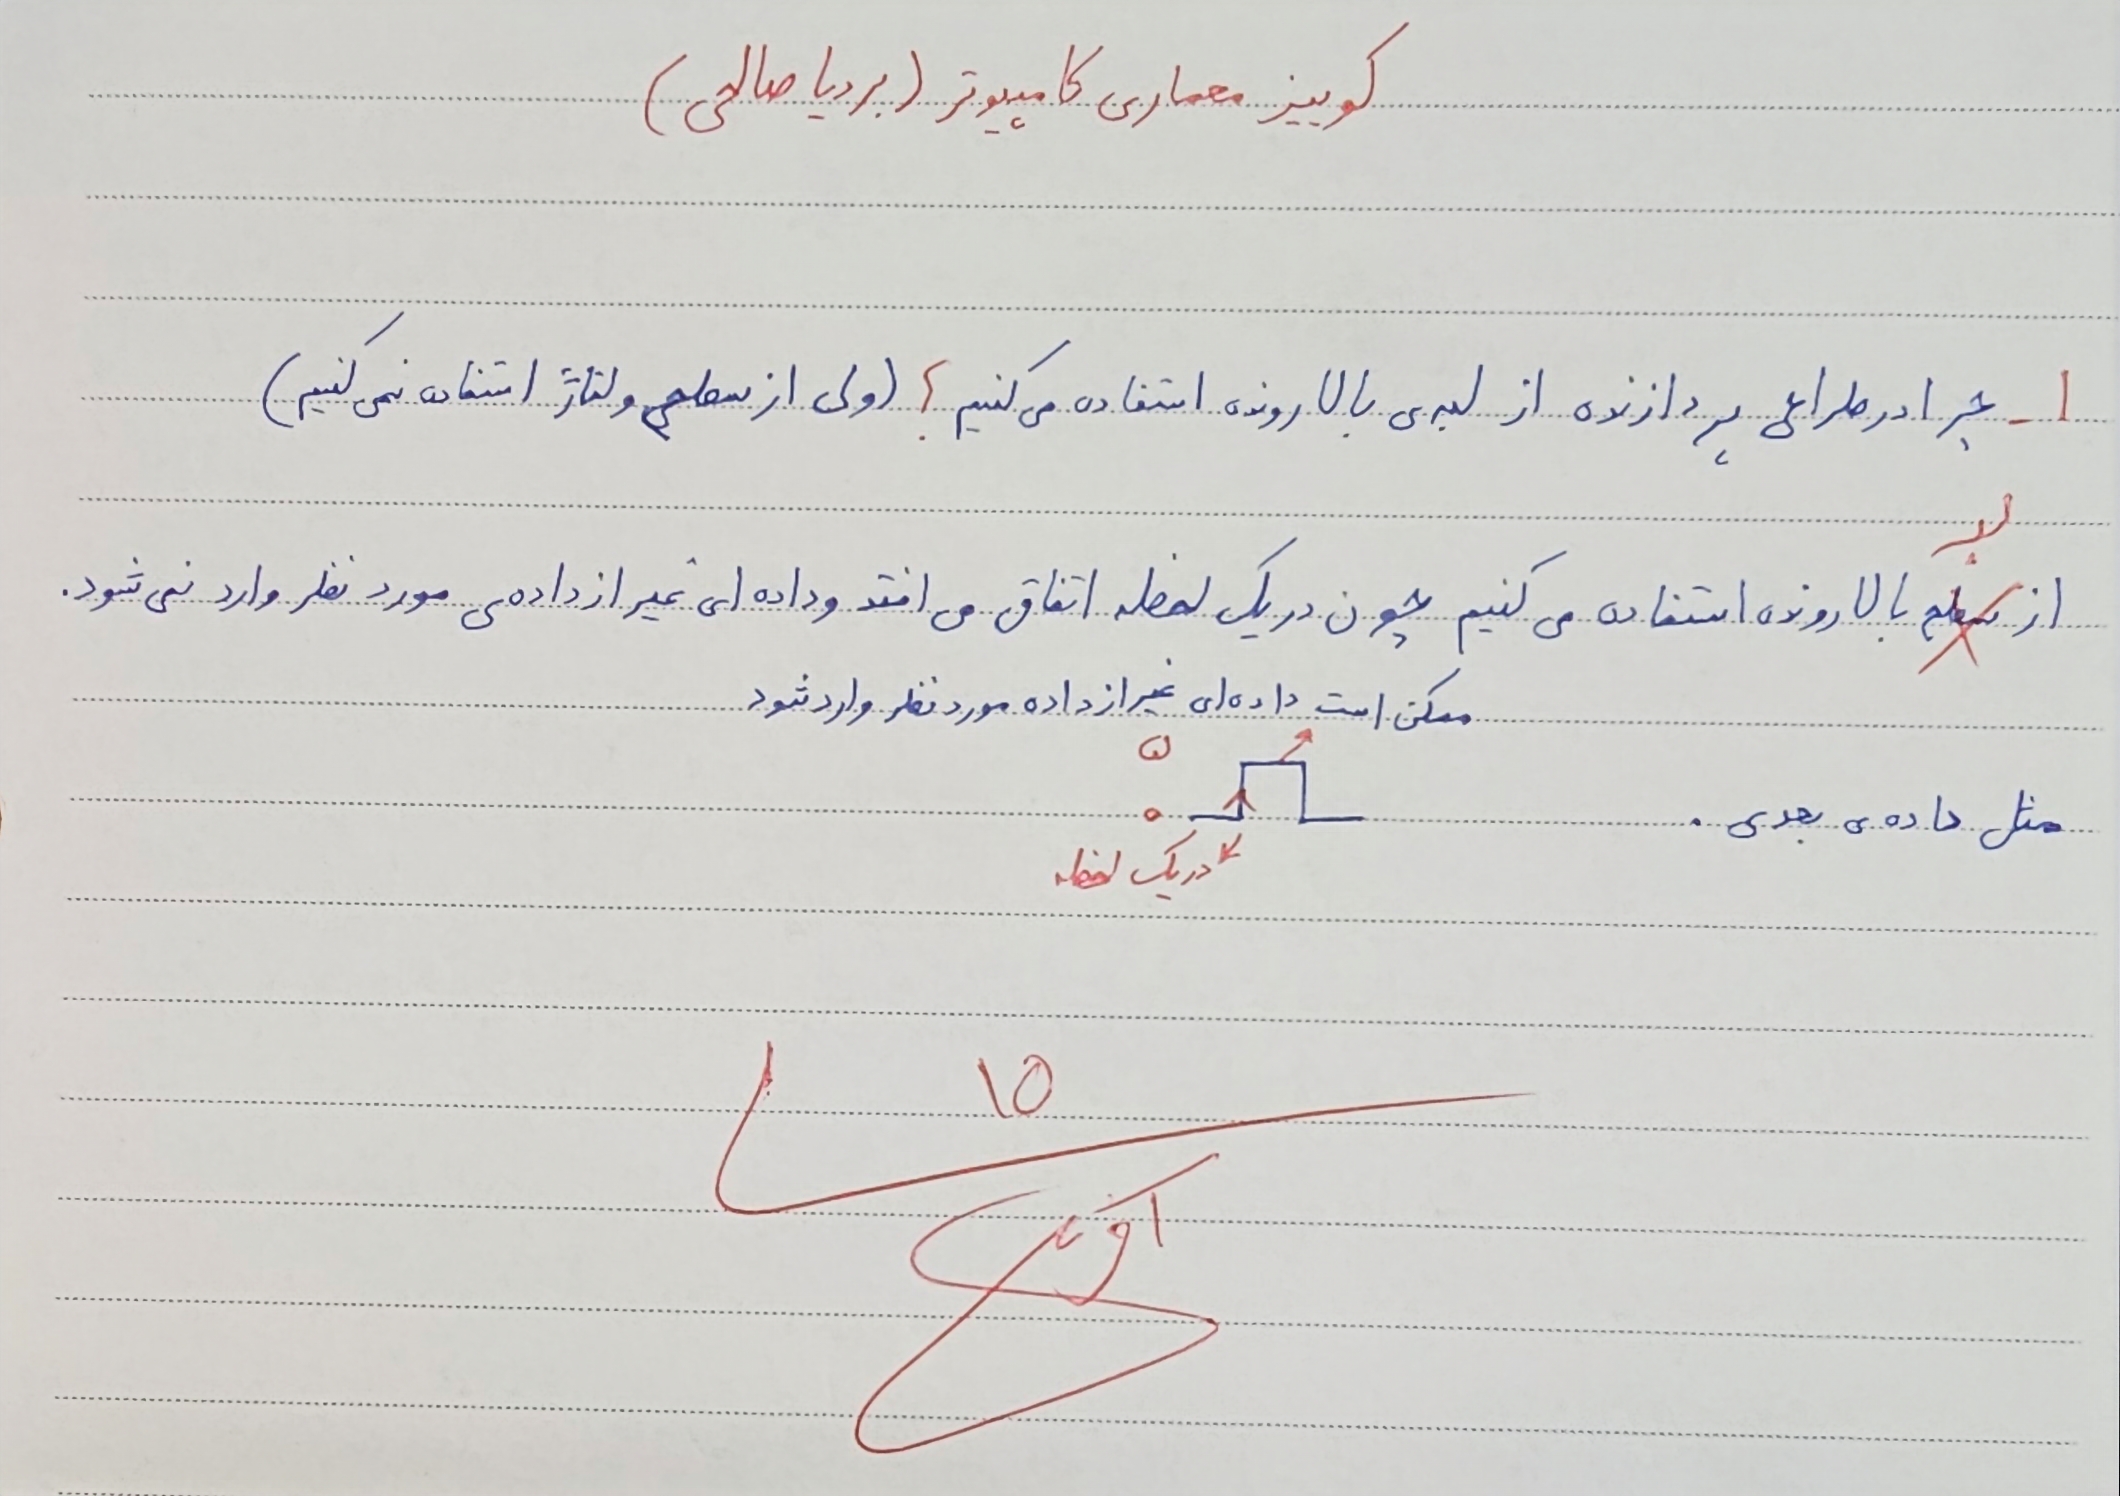 کوییز معماری کامپیوتر (بردیا صالحی)
۱- چرا در طراحی پردازنده از لبه‌ی بالا رونده استفاده می‌کنیم؟ (ولی از سطح ولتاژ استفاده نمی‌کنیم)
لبه
از سطح بالا رونده استفاده می‌کنیم چون در یک لحظه اتفاق می‌افتد و داده‌ای غیر از داده‌ی مورد نظر وارد نمی‌شود.
ممکن است داده‌ای غیر از داده مورد نظر وارد شود
۵
مثل داده‌ی بعدی. ۰
در یک لحظه
۱۵